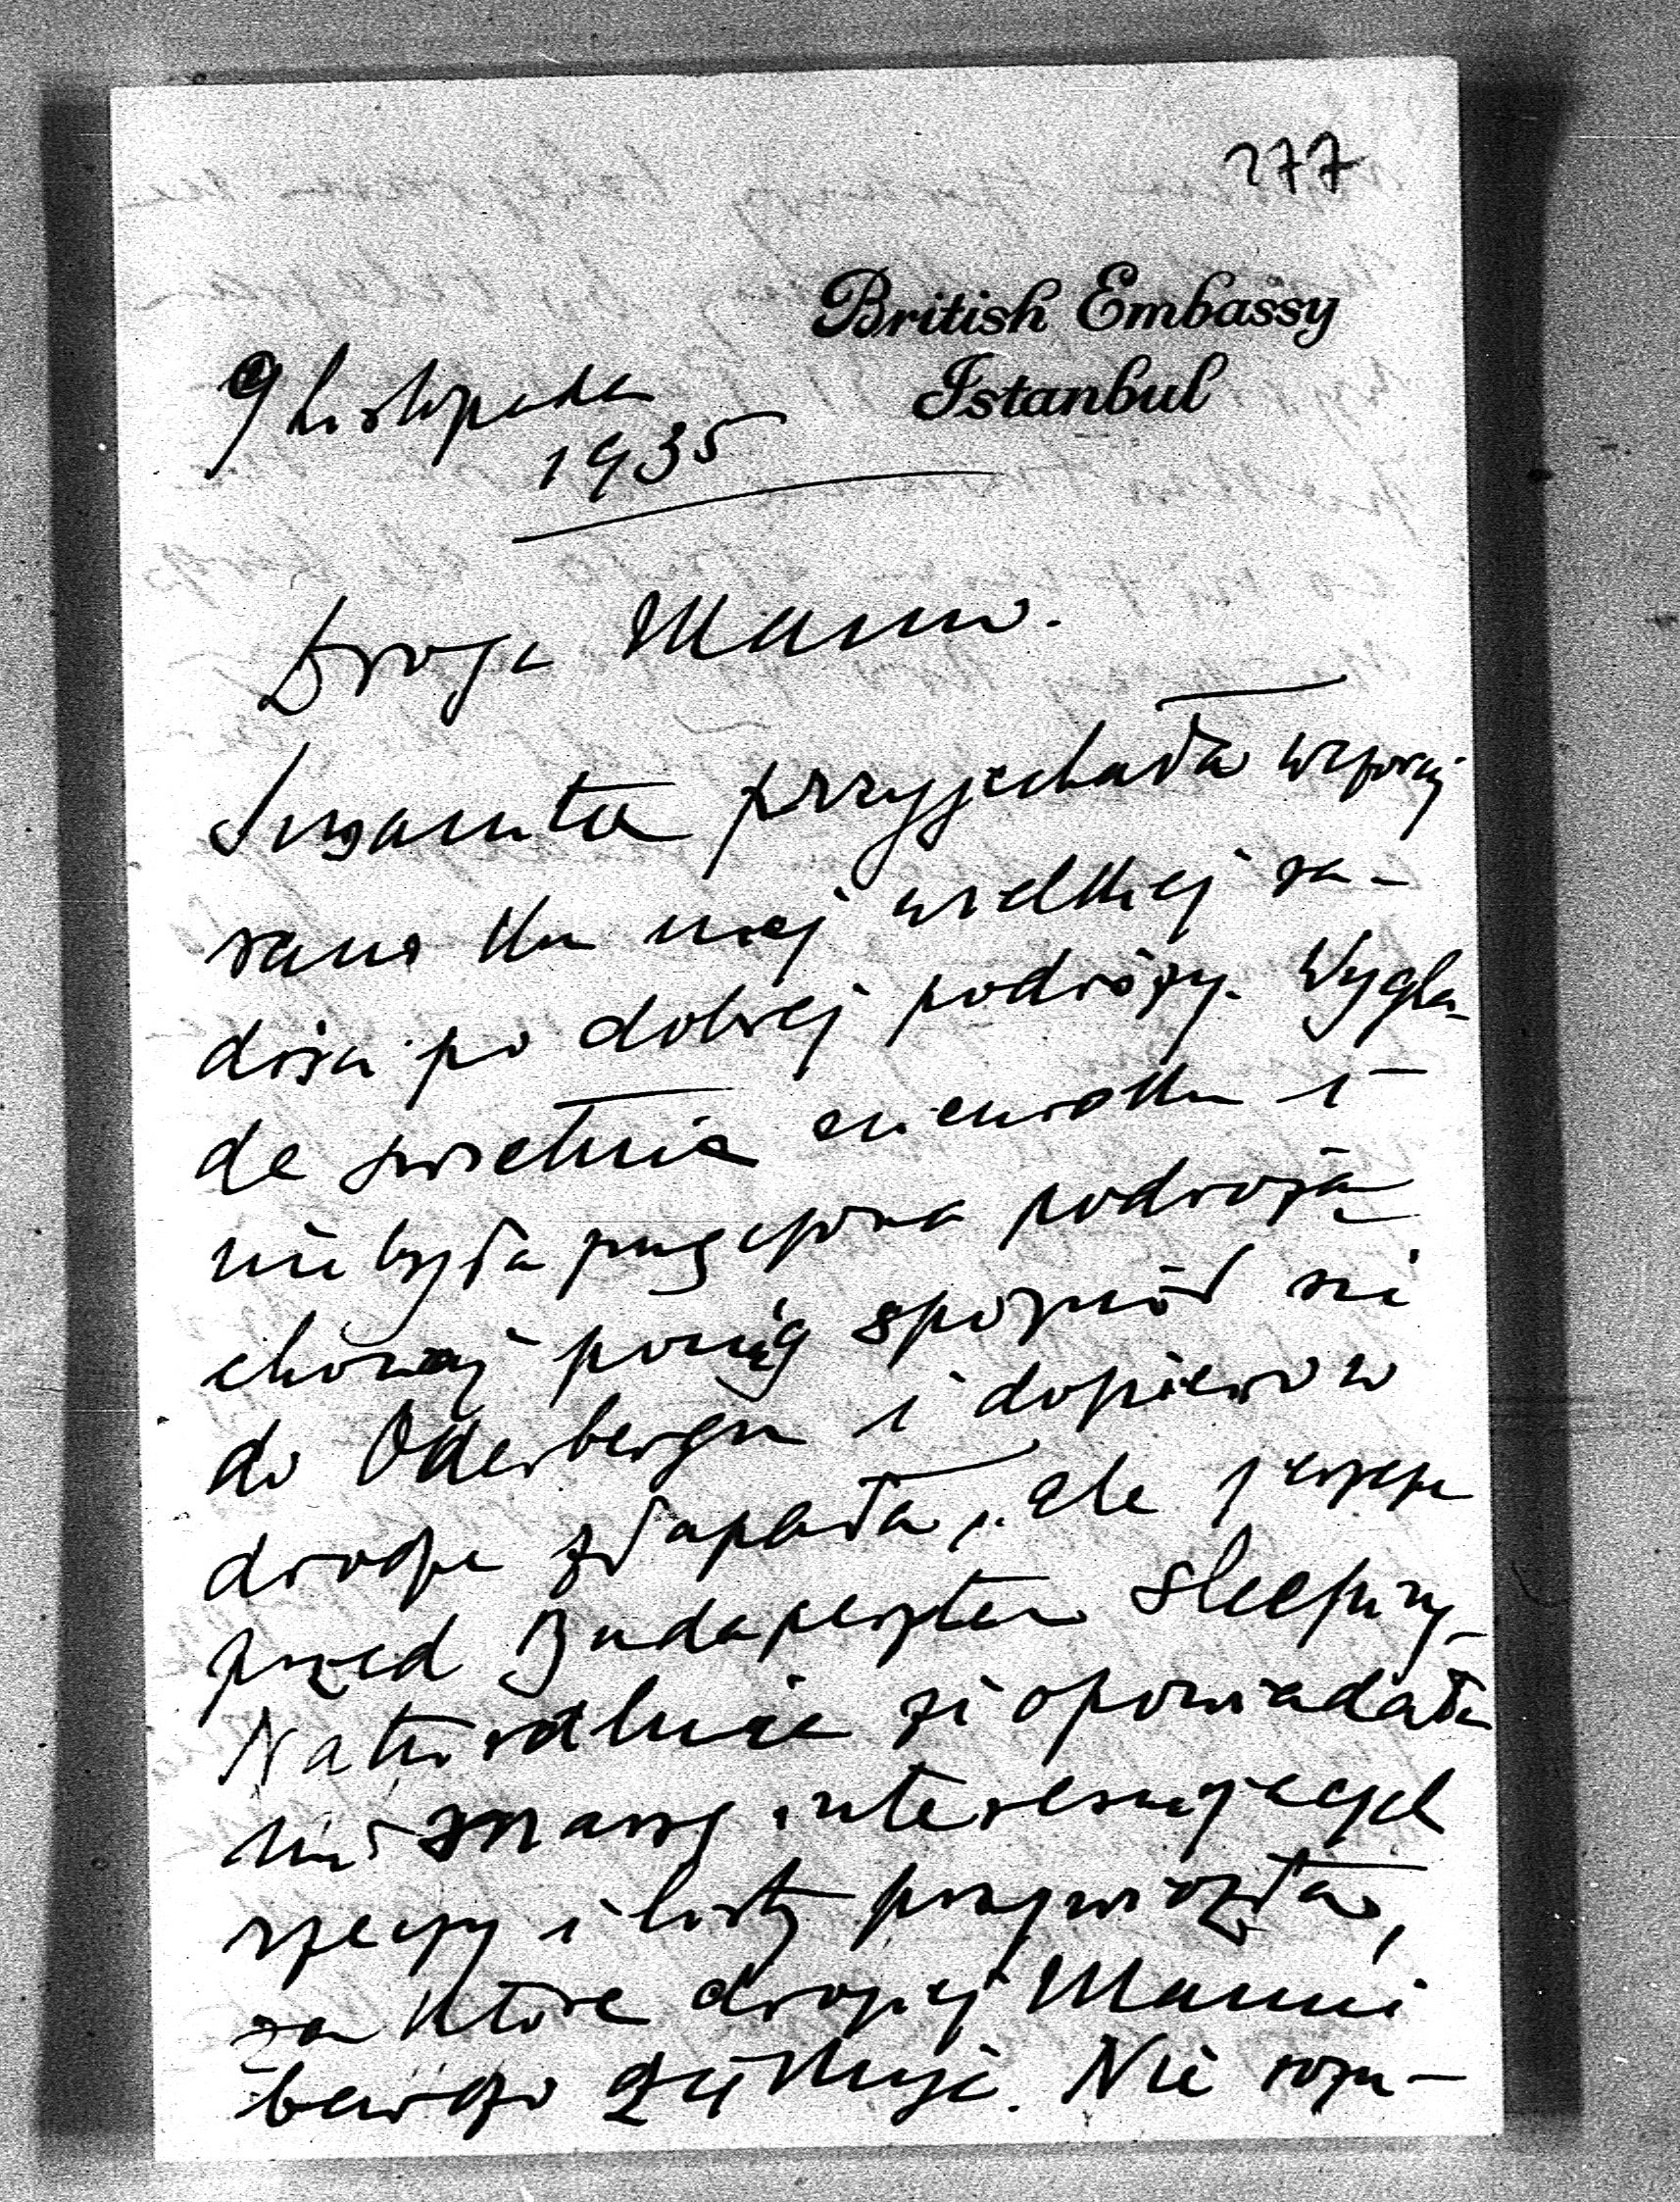 277
British Embassy
Istanbul
9 Listopada
1935
Droga Mamo.
Zuzanna przyjechała wczoraj
rano ku mej wielkiej ra-
dości po dobrej podróży. Wyglą-
da świetnie and i
nie była zmęczona podróżą
chociaż pociąg spoznił się
do Oderbergu i dopiero w
drodze złapała, ale jeszcze
przed Budapesztem sleeping.
Naturalnie że opowiadała
mi masę interesujących
rzeczy i listy przywiozła,
za które drogiej Mamie
bardzo dziękuję. Nie rozu-